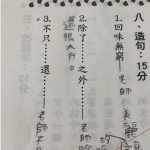 八、造句：15分
1.回味無窮：老師美麗的
2.除……之外……老師除
還很大方。
3.不只……還……老師不只